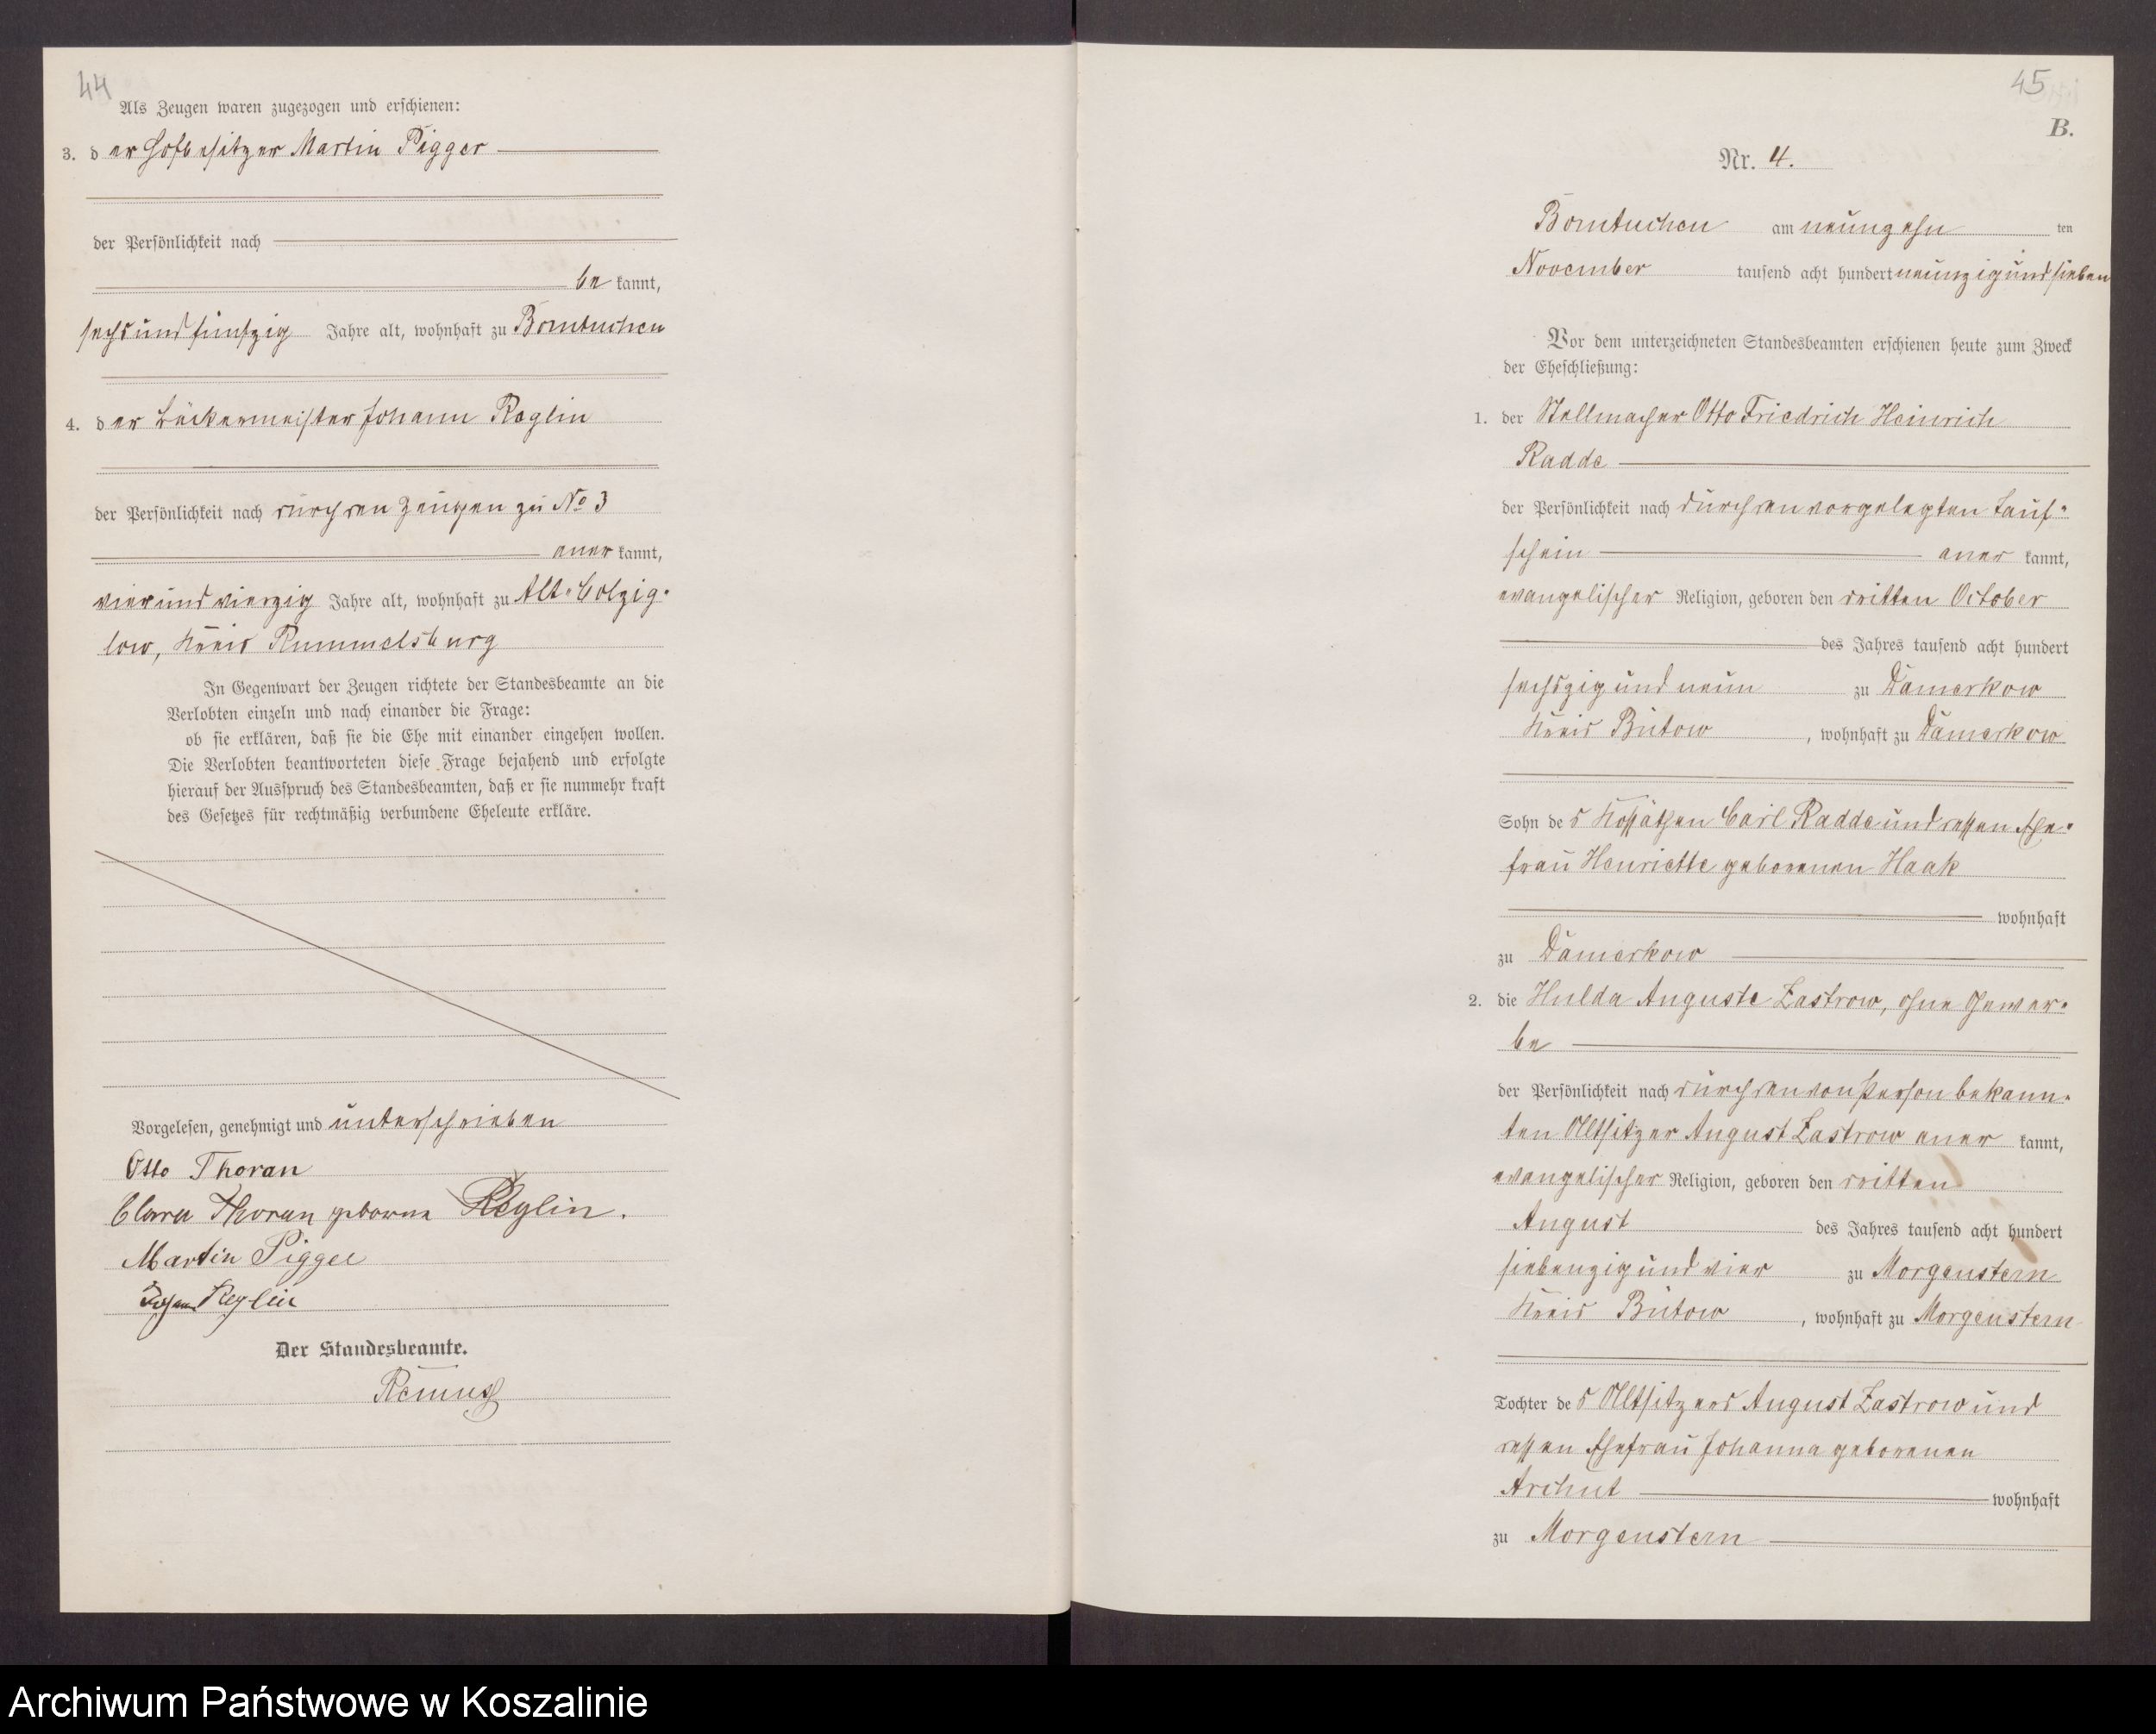 44
Als Zeugen waren zugezogen und erschienen:
3. der Hofbesitzer Martin Pigger
der Persönlichkeit nach
be kannt,
sechsundfünfzig Jahre alt, wohnhaft zu Borntuchen
4. der Bäckermeister Johann Reglin
der Persönlichkeit nach durch den Zeugen zu No 3
aner kannt,
vierundvierzig Jahre alt, wohnhaft zu Alt-Colzig-
low, Kreis Rummelsburg
In Gegenwart der Zeugen richtete der Standesbeamte an die
Verlobten einzeln und nach einander die Frage:
ob sie erklären, daß sie die Ehe mit einander eingehen wollen.
Die Verlobten beantworteten diese Frage bejahend und erfolgte
hierauf der Ausspruch des Standesbeamten, daß er sie nunmehr kraft
des Gesetzes für rechtmäßig verbundene Eheleute erkläre.
Vorgelesen, genehmigt und unterschrieben
Otto Thoran
Clara Thoran geborene Reglin.
Martin Pigger
Johann Reglin
Der Standesbeamte.
Remus
45
B.
Nr. 4.
Borntuchen am neunzehn ten
November tausend acht hundert neunzig und sieben
Vor dem unterzeichneten Standesbeamten erschienen heute zum Zweck
der Eheschließung:
1. der Stellmacher Otto Friedrich Heinrich
Radde
der Persönlichkeit nach durch den vorgelegten Tauf-
schein aner kannt,
evangelischer Religion, geboren den dritten October
des Jahres tausend acht hundert
sechszig und neun zu Damerkow
Kreis Bütow, wohnhaft zu Damerkow
Sohn des Kossäthen Carl Radde und dessen Ehe-
frau Henriette geborenen Haak
wohnhaft
zu Damerkow
2. die Hulda Auguste Zastrow, ohne Gewer-
be
der Persönlichkeit nach durch den von Person bekann-
ten Altsitzer August Zastrow aner kannt,
evangelischer Religion, geboren den dritten
August des Jahres tausend acht hundert
siebenzig und vier zu Morgenstern
Kreis Bütow, wohnhaft zu Morgenstern
Tochter des Altsitzers August Zastrow und
dessen Ehefrau Johanna geborenen
Archut wohnhaft
zu Morgenstern
Archiwum Państwowe w Koszalinie